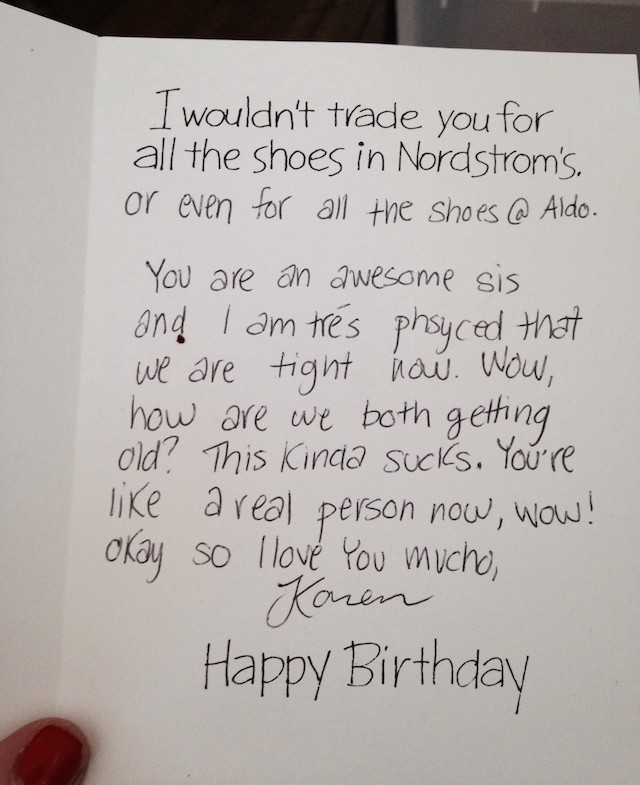 I wouldn't trade you for
all the shoes in Nordstrom's.
or even for all the shoes @ Aldo.
You are an awesome sis
and I am trés phsyced that
we are tight now. Wow,
how are we both getting
old? This kinda sucks. You're
like a real person now, wow!
okay so I love You mucho,
Karen
Happy Birthday